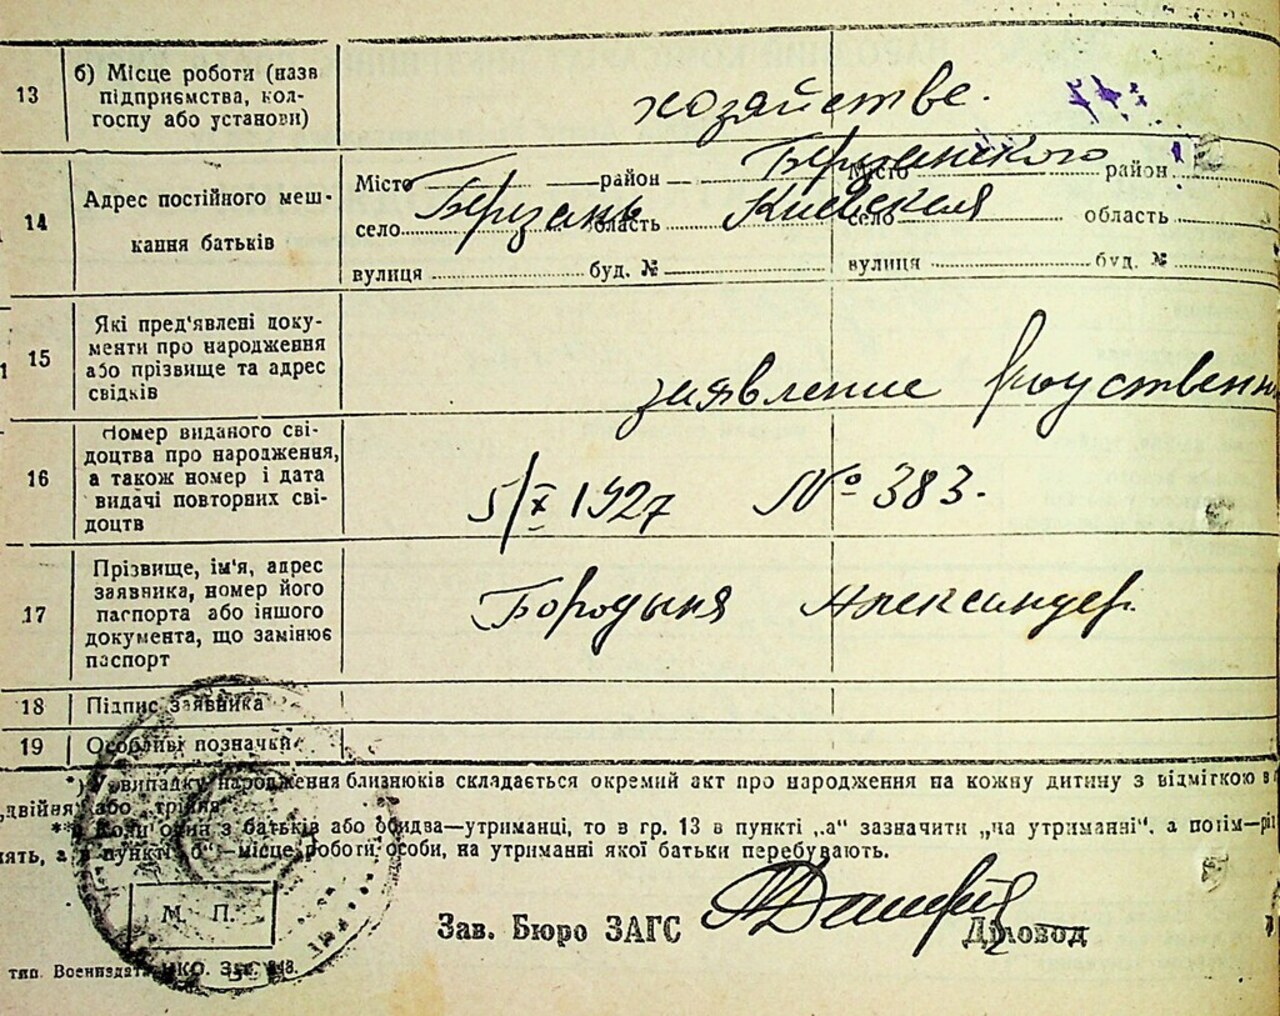 13
б) Місце роботи (назв
підприємства, кол-
госпу або установи)
хозяйстве.
14
Адрес постійного меш-
кання батьків
Місто район Березанского Місто район
село Березань область Киевская село область
вулиця буд. № вулиця буд. №
15
Які пред'явлені доку-
менти про народження
або прізвище та адрес
свідків
заявление
16
Номер виданого сві-
доцтва про народження,
а також номер і дата
видачі повторних сві-
доцтв
5/X 1927 № 383.
17
Прізвище, ім'я, адрес
заявника, номер його
паспорта або іншого
документа, що замінює
паспорт
Бородыня Александр.
18 Підпис заявника
19 Особливі позначки
*) У випадку народження близнюків складається окремий акт про народження на кожну дитину з відміткою
„двійня" або трійня
** Коли один з батьків або обидва—утриманці, то в гр. 13 в пункті „а" зазначити „на утриманні". а потім—
а в пункті „б"—місце роботи особи, на утриманні якої батьки перебувають.
М. П.
Зав. Бюро ЗАГС Діловод
тип. Воениздата НКО. Зак.